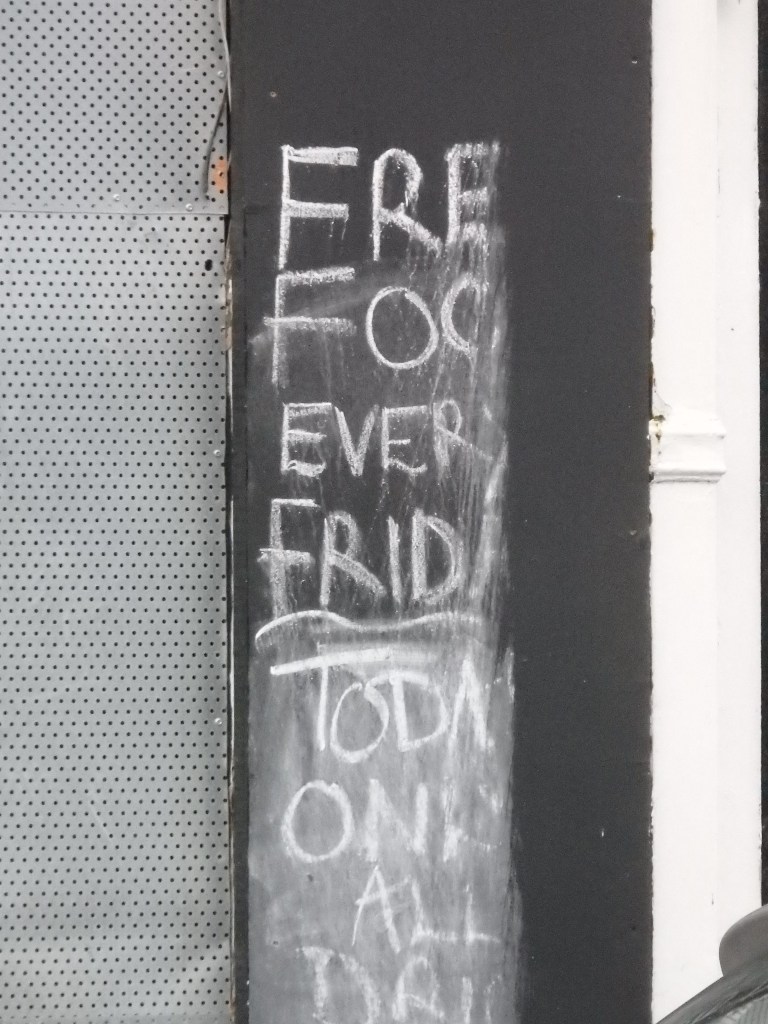 FRE
FOO
EVER
FRID
TODA
ONE
ALL
DRI